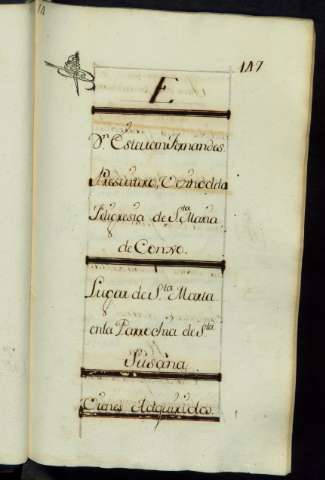 147
E
Dn Estevan Fernandes
Presvitero, Vezino de la
Feligresia de Sta Maria
de Conxo.
Lugar de Sta Maria
en la Parrochia de Sta
Susana
Vienes Adquiridos.